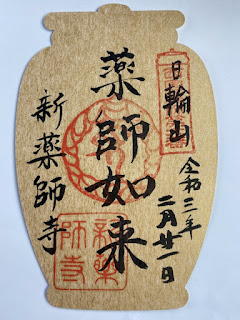 日輪山
令和三年
二月廿一日
薬師如来
新薬師寺
新薬
師寺